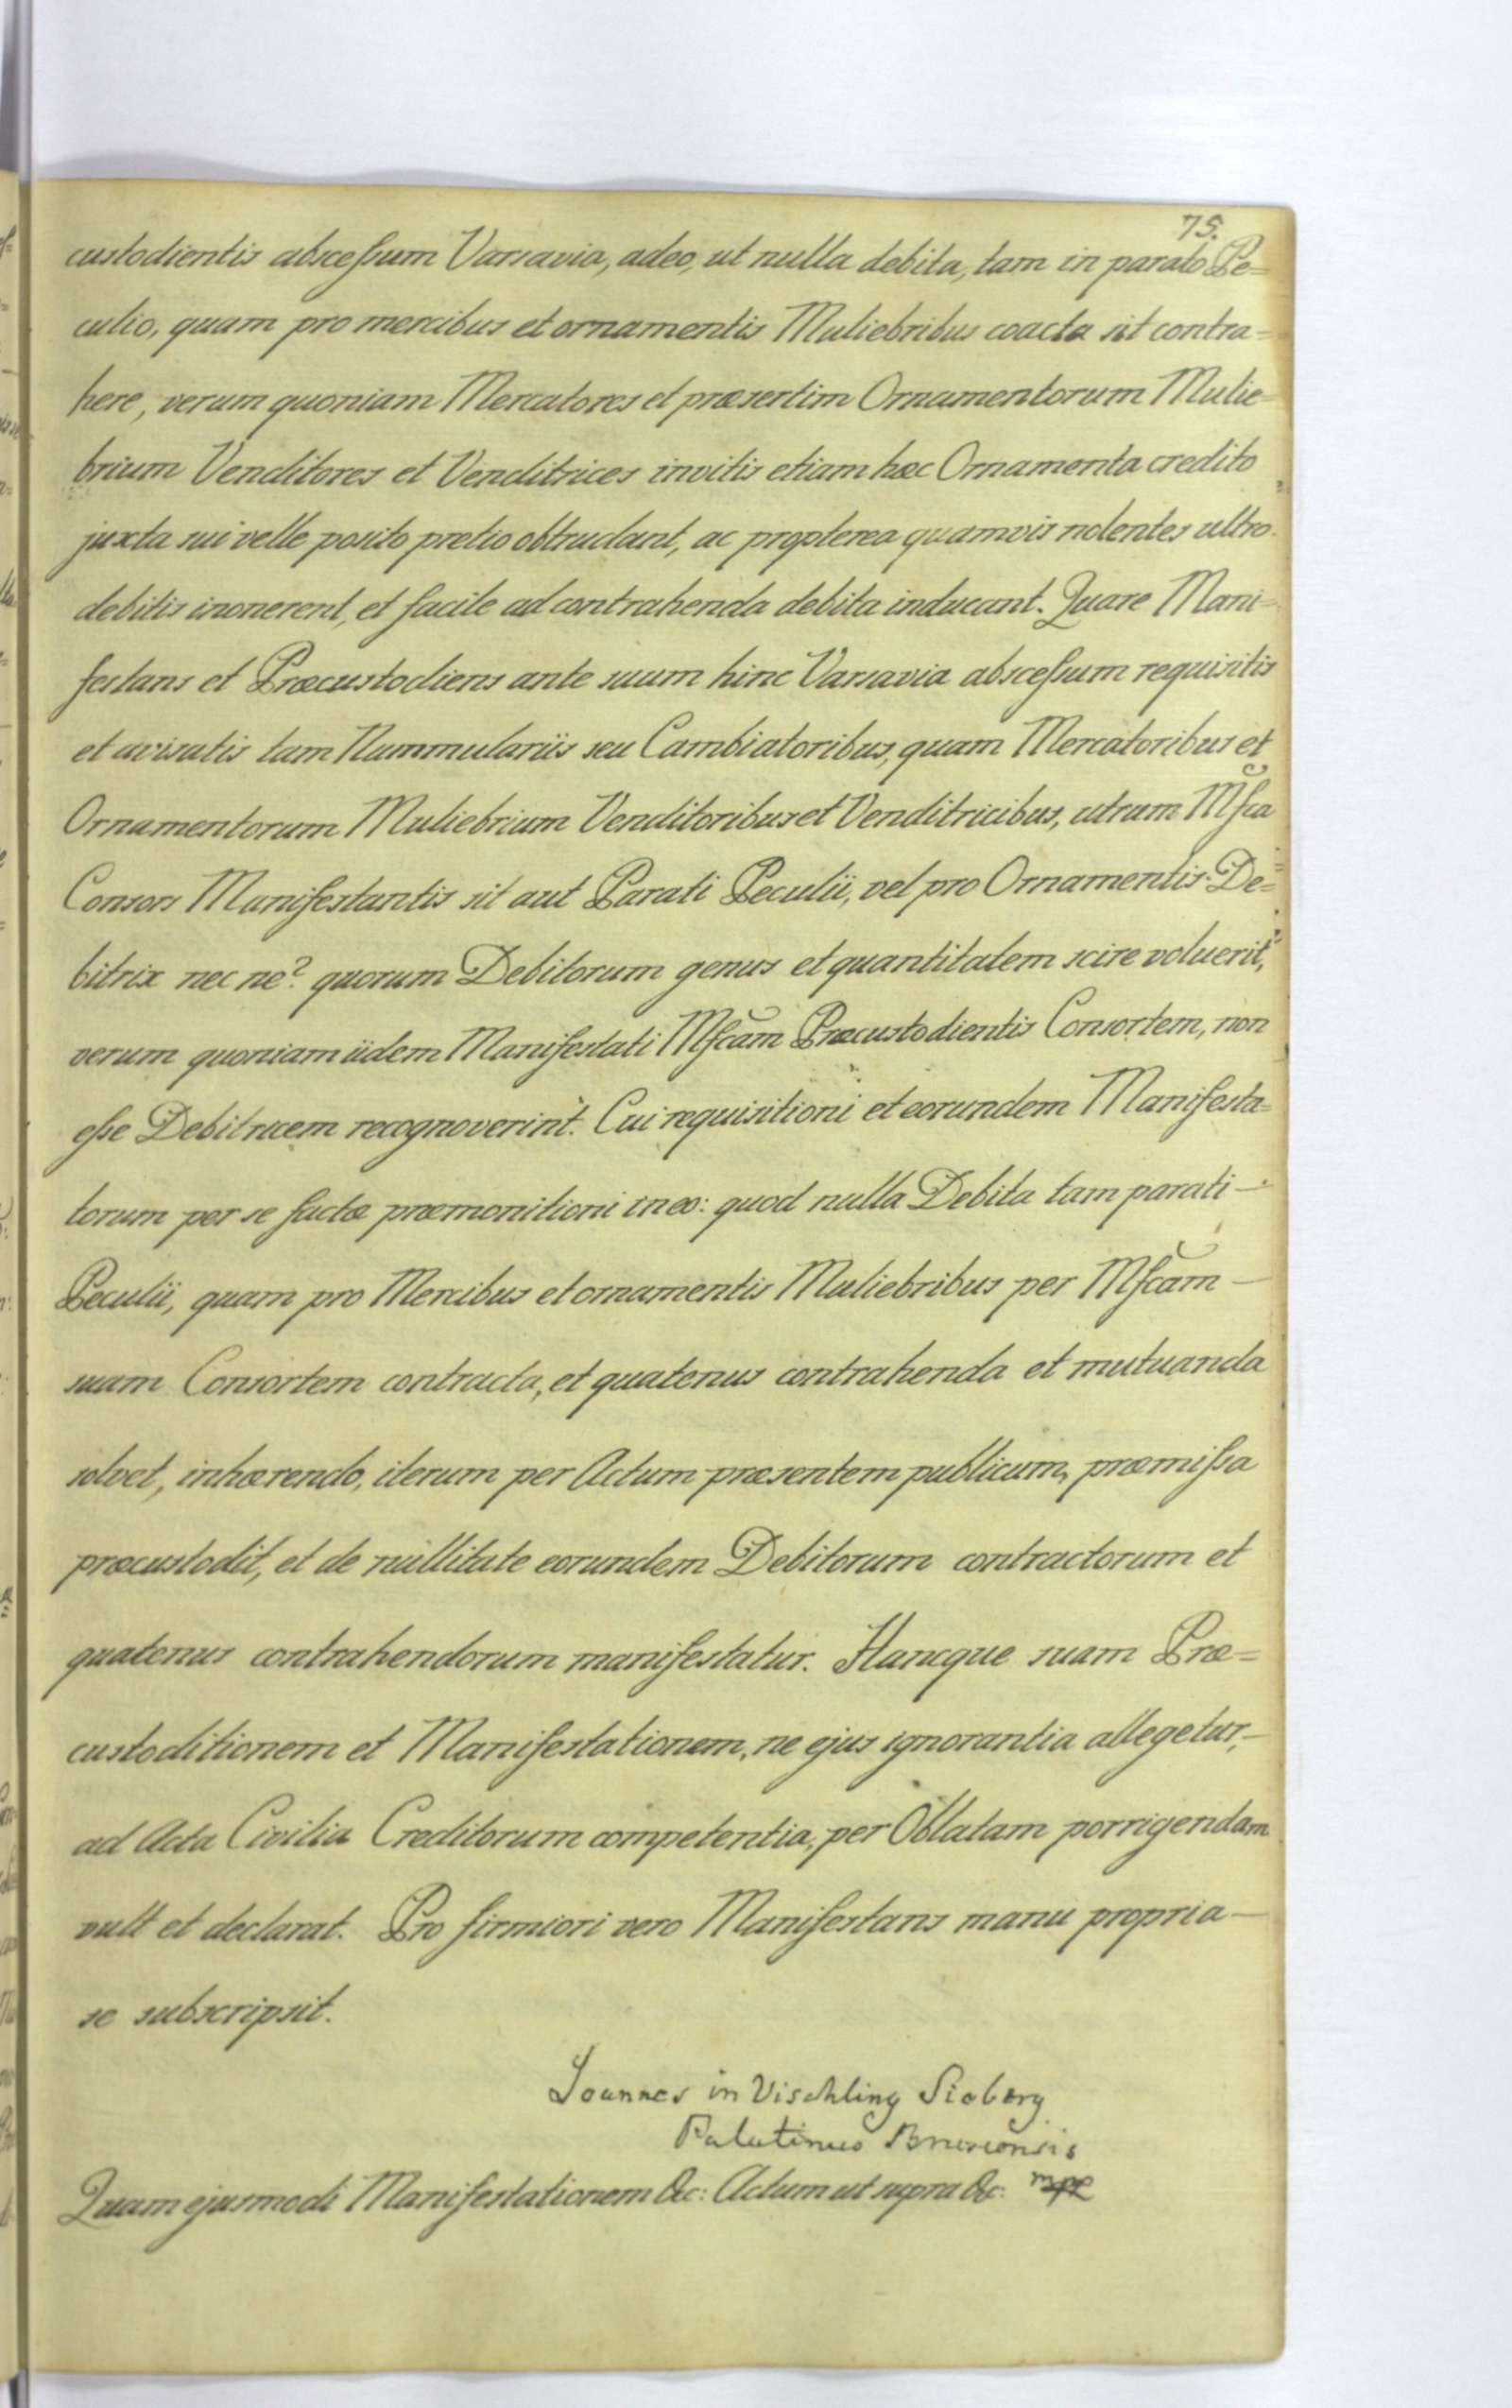 75.
custodientis abscessum Varsavia, adeo, ut nulla debita, tam in parato Pe=
culio, quam pro mercibus et ornamentis Muliebribus coacta sit contra=
here, verum quoniam Mercatores et præsertim Ornamentorum Mulie=
brium Venditores et Venditrices invitis etiam hæc Ornamenta credito
juxta sui velle posito pretio obtrudant, ac propterea quamvis nolentes ultro
debitis inonerent, et facile ad contrahenda debita inducant. Quare Mani=
festans et Præcustodiens ante suum hinc Varsavia abscessum requisitis
et avisatis tam Nummulariis seu Cambiatoribus, quam Mercatoribus et
Ornamentorum Muliebrium Venditoribus et Venditricibus, utrum Mfca
Consors Manifestantis sit aut Parati Peculii, vel pro Ornamentis De=
bitrix nec ne? quorum Debitorum genus et quantitatem scire voluerit,
verum quoniam iidem Manifestati Mfcam Præcustodientis Consortem, non
esse Debitricem recognoverint. Cui requisitioni et eorundem Manifesta=
torum per se factæ præmonitioni in eo: quod nulla Debita tam parati –
Peculii, quam pro Mercibus et ornamentis Muliebribus per Mfcam –
suam Consortem contracta, et quatenus contrahenda et mutuanda
solvet, inhærendo, iterum per Actum præsentem publicum, præmissa
præcustodit, et de nullitate eorundem Debitorum contractorum et
quatenus contrahendorum manifestatur. Hancque suam Præ=
custoditionem et Manifestationem, ne ejus ignorantia allegetur, –
ad Acta Civilia Creditorum competentia, per Oblatam porrigendam
vult et declarat. Pro firmiori vero Manifestans manu propria –
se subscripsit.
Joannes in Vischling Sieberg
Palatinus
Quam ejusmodi Manifestationem &c: Actum ut supra &c: mpp